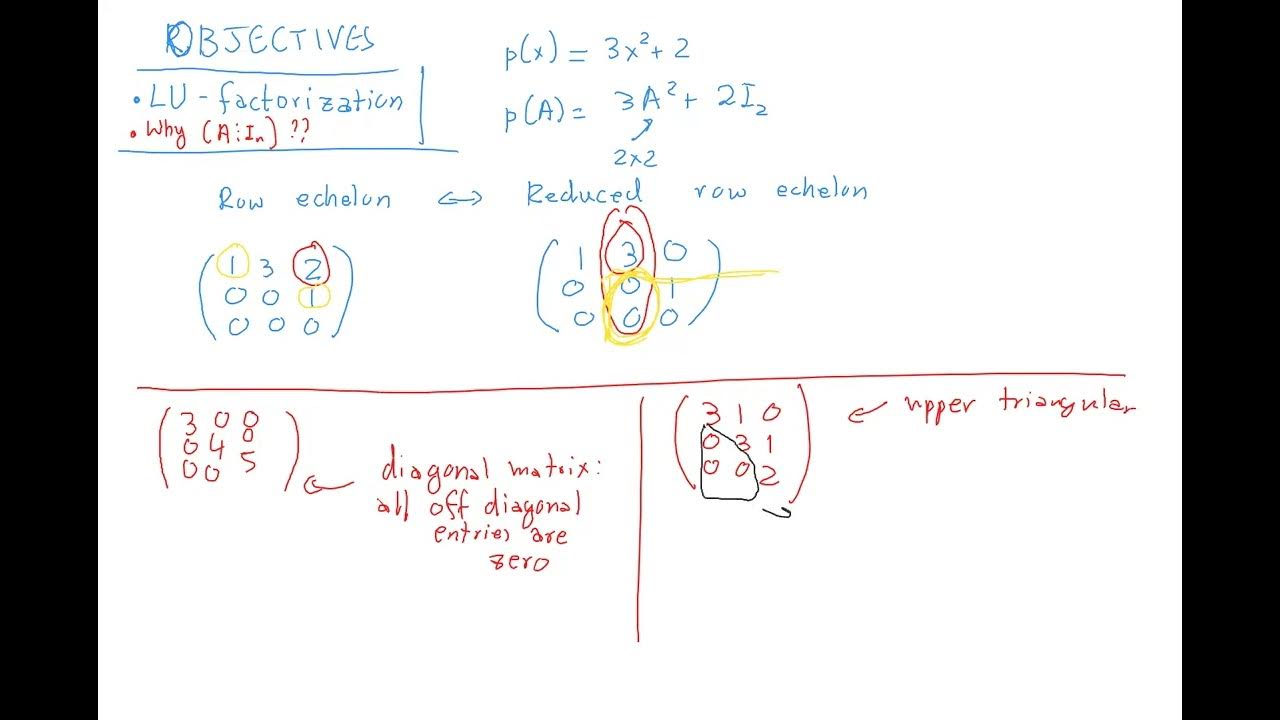 OBJECTIVES
• LU - factorization
• Why (A¦In] ??
p(x) = 3x² + 2
p(A) = 3A² + 2I₂
2x2
Row echelon ⟷ Reduced row echelon
1 3 2
0 0 1
0 0 0
1 3 0
0 0 1
0 0 0
3 0 0
0 4 0
0 0 5
diagonal matrix:
all off diagonal
entries are
zero
3 1 0
0 3 1
0 0 2
upper triangular